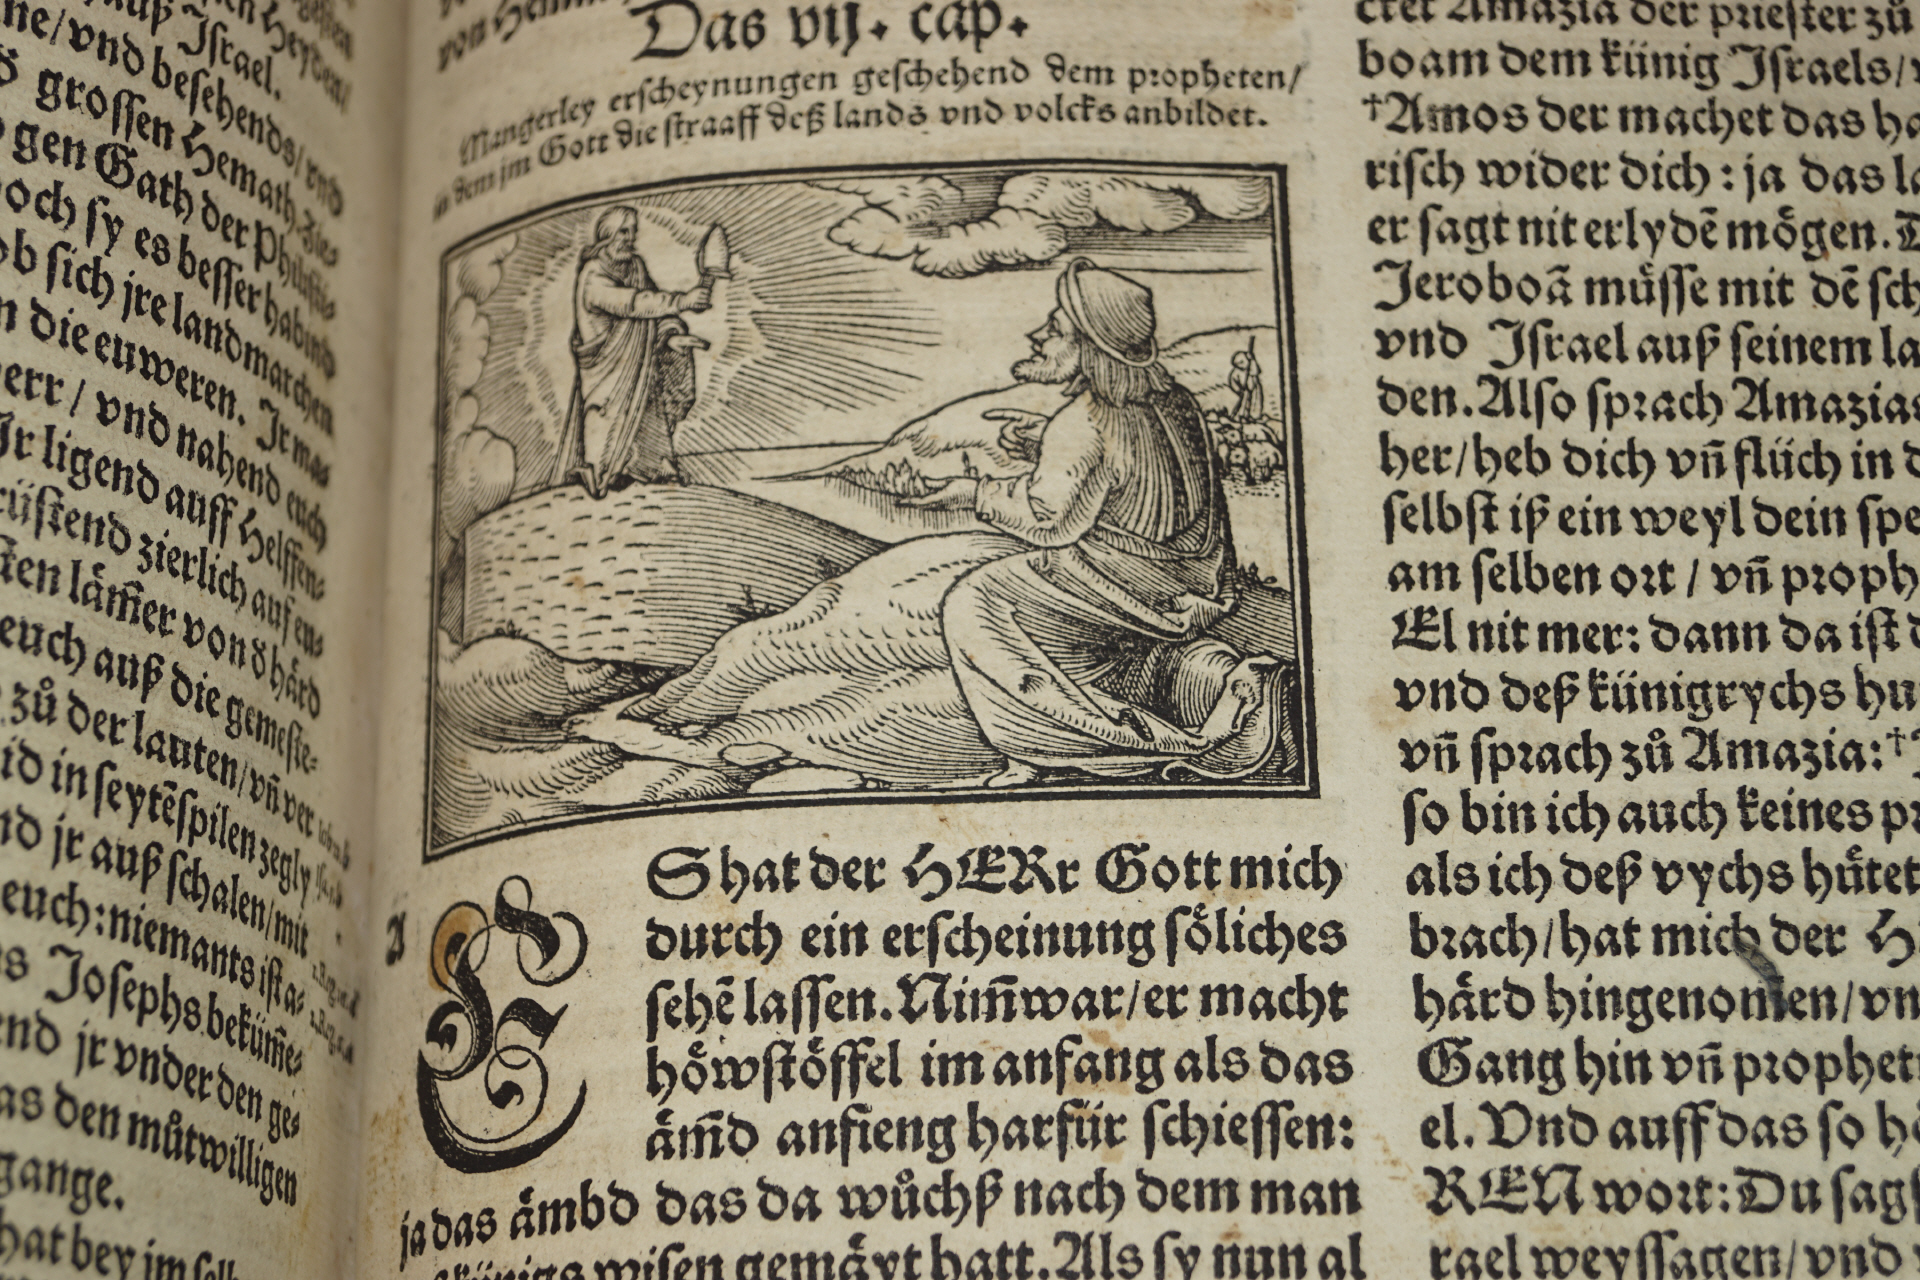 auß Israel.
ne/vnd besehends/vnd
grossen Hemath.
gen Gath der Philistis
och sy es besser habind
ob sich jre landmarchen
die euweren. Ir
err/vnd nahend euch
Ir ligend auff Helffen-
rüstend zierlich auf eu-
ten läm̃er von d härd
euch auß die gemeste-
zů der lauten/vñ ver
id in seytẽspilen zegly
nd jr auß schalen/mit
euch:niemants ist a-
s Josephs beküm̃e-
end jr vnder den ge-
as den můtwilligen
gange.
hat bey jm
Das vij. cap.
Mangerley erscheynungen geschehend dem propheten/
in dem jm Gott die straaff deß lands vnd volcks anbildet.
A
ES hat der HERr Gott mich
durch ein erscheinung sőliches
sehẽ lassen. Nim̃war/er macht
hőwstőffel im anfang als das
äm̃d anfieng harfür schiessen:
ja das ämbd das da wůchß nach dem man
künigs wisen gemäyt hatt. Als sy nun al
ctet Amazia der priester zů
boam dem künig Israels/
†Amos der machet das
risch wider dich: ja das
er sagt nit erlydẽ mőgen.
Jeroboã müsse mit dẽ
vnd Israel auß seinem
den. Also sprach Amazias
her/heb dich vñ flüch in
selbst iß ein weyl dein
am selben ort/vñ
El nit mer: dann da ist
vnd deß künigrychs
vñ sprach zů Amazia:†
so bin ich auch keines
als ich deß vychs hütet
brach/hat mich der
härd hingenom̃en/
Gang hin vñ
el. Vnd auff das so
REN wort: Du
rael weyssagen/vnd